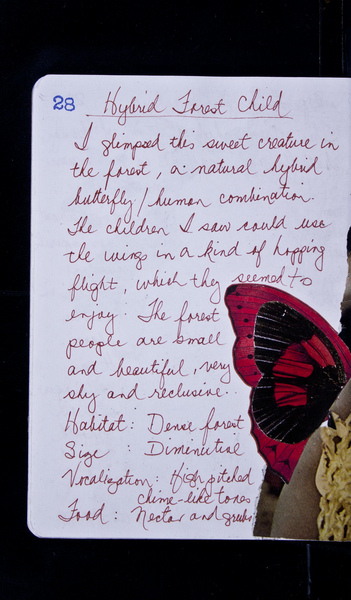 28
Hybrid Forest Child
I glimpsed this sweet creature in
the forest, a natural hybrid
butterfly/human combination.
The children I saw could use
the wings in a kind of hopping
flight, which they seemed to
enjoy. The forest
people are small
and beautiful, very
shy and reclusive.
Habitat: Dense forest
Size : Diminutive
Vocalization: High pitched
chime-like tones
Food : Nectar and grubs